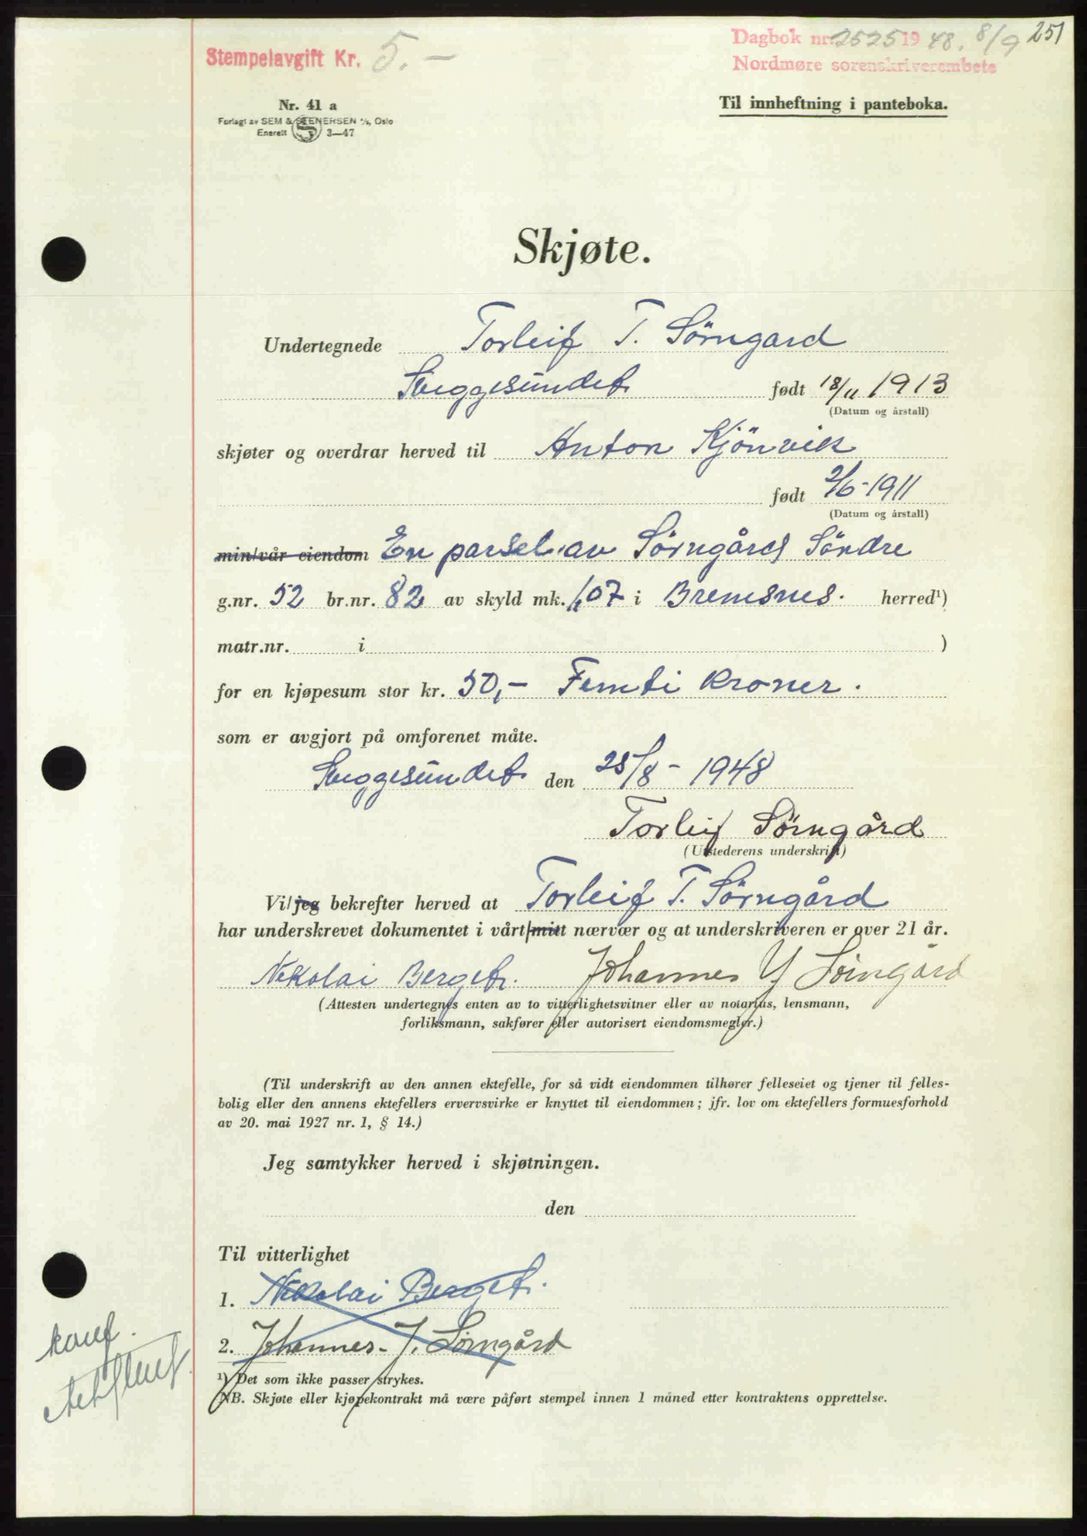 Stempelavgift Kr. 5.-
Dagbok nr. 2525 1948. 8/9 251
Nordmøre sorenskriverembete
Nr. 41 a
Forlagt av SEM & STENERSEN A/S, Oslo
Enerett S 3-47
Til innheftning i panteboka.
Skjøte.
Undertegnede Torleif T. Sörngard
Sveggesundet født 18/11 1913
(Datum og årstall)
skjøter og overdrar herved til Anton Kjönvik
født 2/6-1911
(Datum og årstall)
min/vår eiendom En parsel av Sörngård Söndre
g.nr. 52 br.nr. 82 av skyld mk. 0,07 i Bremsnes. herred¹)
matr.nr. i )
for en kjøpesum stor kr. 50,- Femti kroner.
som er avgjort på omforenet måte.
Sveggesundet den 25/8-1948
Torleif Sörngård
(Utstederens underskrift)
Vi/jeg bekrefter herved at Torleif T. Sörngård
har underskrevet dokumentet i vårt/mitt nærvær og at underskriveren er over 21 år.
Nikolai Berget. Johannes J Sörngård
(Attesten undertegnes enten av to vitterlighetsvitner eller av notarius, lensmann,
forliksmann, sakfører eller autorisert eiendomsmegler.)
(Til underskrift av den annen ektefelle, for så vidt eiendommen tilhører felleseiet og tjener til felles-
bolig eller den annens ektefellers ervervsvirke er knyttet til eiendommen; jfr. lov om ektefellers formuesforhold
av 20. mai 1927 nr. 1, § 14.)
Jeg samtykker herved i skjøtningen.
den
Til vitterlighet
1. Nikolai Berget.
2. Johannes J. Sörngård
¹) Det som ikke passer strykes.
NB. Skjøte eller kjøpekontrakt må være påført stempel innen 1 måned etter kontraktens opprettelse.